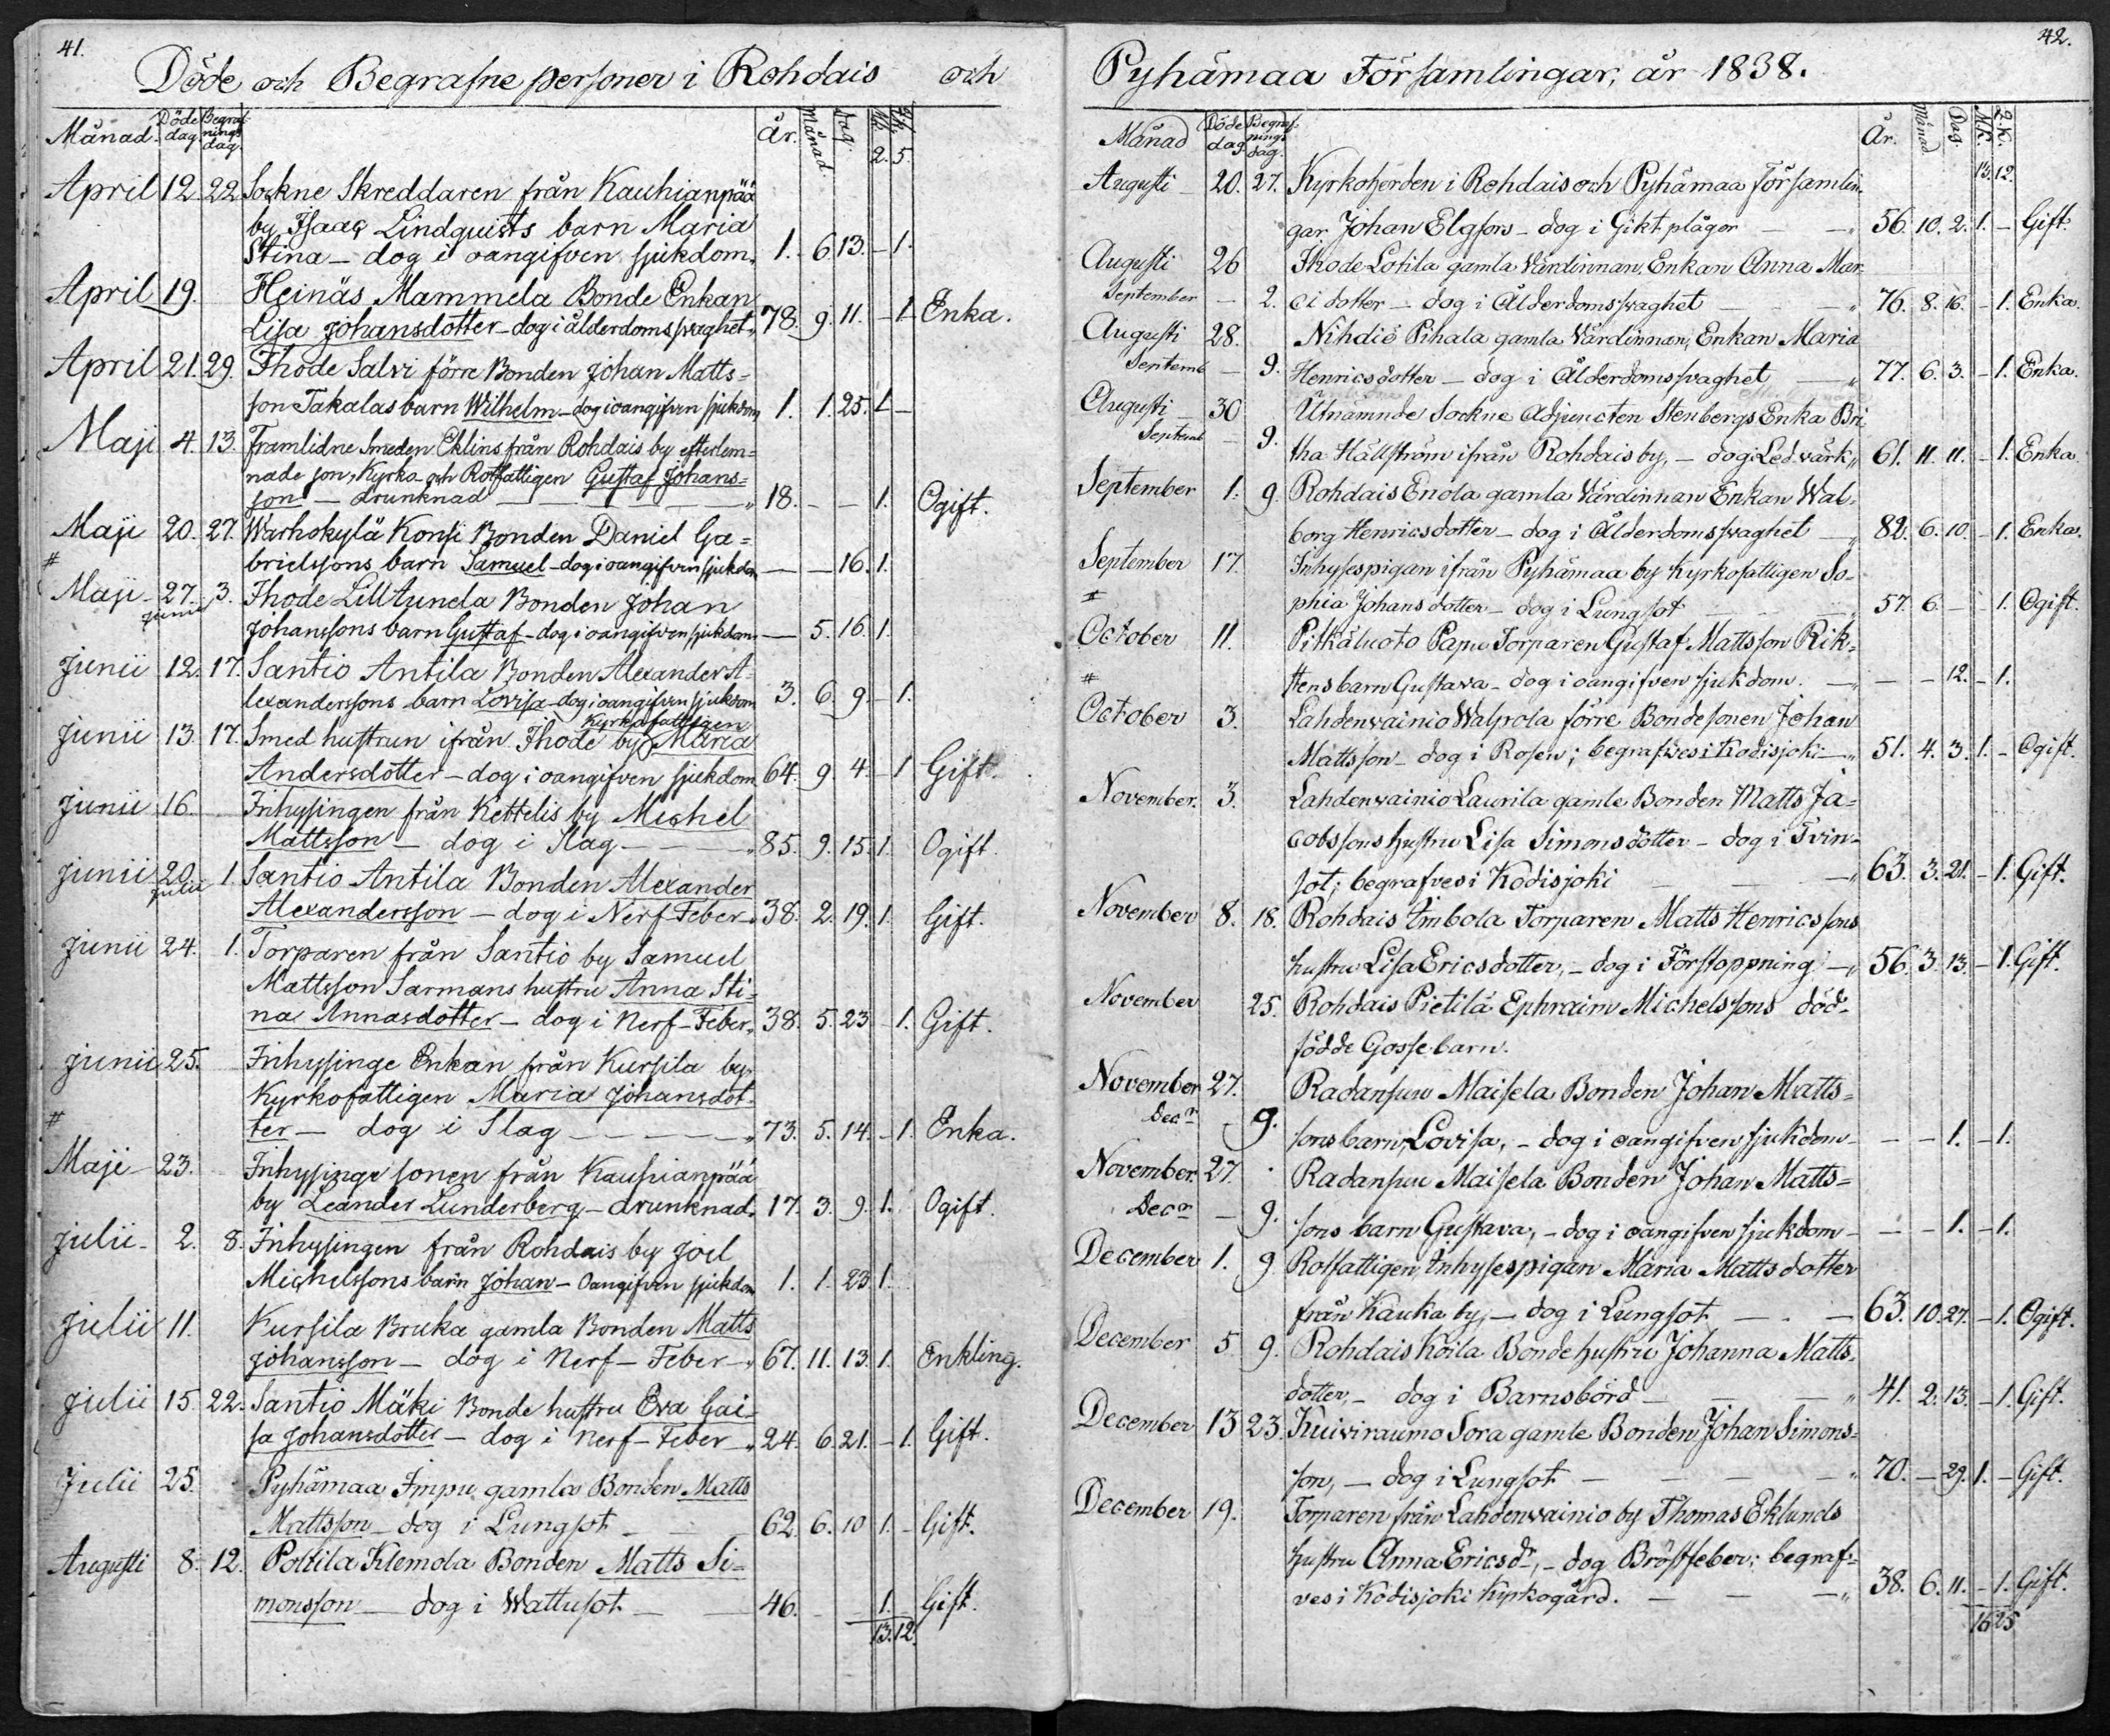 41.
Döde och Begrafne personer i Rohdais och
Månad. Döde dag. Begraf-nings dag. År. Månad. Dag. M.k. Q.k.
2. 5.
April 12. 22. Sockne Skreddaren från Kauhianpää
by Isaac Lindquists barn Maria
Stina – dog i oangifven sjukdom „ 1. 6. 13. – 1.
April 19. Heinäs Mammela Bonde Enkan
Lisa Johansdotter – dog i ålderdomssvaghet „ 78. 9. 11. – 1. Enka.
April 21. 29. Ihode Salvi förre Bonden Johan Matts-
son Takalas barn Wilhelm – dog i oangifven sjukdom 1. 1. 25. 1. –
Maji 4. 13. Framlidne Smeden Eklins från Rohdais by efterlem-
nade son, Kyrko och Rotfattigen Gustaf Johans-
son – drunknad „ 18. – – 1. Ogift.
Maji 20. 27. Warhokylä Konsi Bonden Daniel Ga-
# brielssons barn Samuel – dog i oangifven sjukdom – – 16. 1.
Maji – 27. 3. Ihode Lilltunela Bonden Johan
Junii Johanssons barn Gustaf – dog i oangifven sjukdom – 5. 16. 1.
Junii 12. 17. Santio Antila Bonden Alexander A-
lexanderssons barn Lovisa – dog i oangifven sjukdom 3. 6. 9. – 1.
Kyrkofattigen
Junii 13. 17. Smed hustrun ifrån Ihode by Maria
Andersdotter – dog i oangifven sjukdom 64. 9. 4. – 1. Gift.
Junii 16. Inhysingen från Kettelis by Michel
Mattsson – dog i Slag – „ 85. 9. 15. 1. Ogift.
Junii 20. 1. Santio Antila Bonden Alexander
Julii
Alexandersson – dog i Nerf Feber „ 38. 2. 19. 1. Gift.
Junii 24. 1. Torparen från Santio by Samuel
Mattsson Sarmans hustru Anna Sti-
na Annasdotter – dog i Nerf-Feber „ 38. 5. 23. – 1. Gift.
Junii 25. Inhysinge Enkan från Kursila by
Kyrkofattigen Maria Johansdot-
# ter – dog i Slag – – – „ 73. 5. 14. – 1. Enka.
Maji – 23. Inhysinge sonen från Kauhianpää
by Leander Lunderberg – drunknad. 17. 3. 9. 1. Ogift.
Julii – 2. 8. Inhysingen från Rohdais by Joel
Michelssons barn Johan – Oangifven sjukdom 1. 1. 23. 1.
Julii 11. Kursila Bruka gamla Bonden Matts
Johansson – dog i Nerf-Feber – „ 67. 11. 13. 1. Enkling.
Julii 15. 22. Santio Mäki Bonde hustru Eva Cai-
sa Johansdotter – dog i Nerf-Feber – „ 24. 6. 21. – 1. Gift.
Julii 25. Pyhämaa Impu gamla Bonden Matts
Mattsson – dog i Lungsot – 62. 6. 10 1. – Gift.
Augusti 8. 12. Poltila Klemola Bonden Matts Si-
monsson – dog i Wattusot – 46. – – 1. Gift.
13. 12.
42.
Pyhämaa Församlingar, år 1838.
Månad Döde dag. Begraf-nings dag. År. Månad Dag. M.K. Q.K.
13. 12.
Augusti – 20. 27. Kyrkoherden i Rohdais och Pyhämaa Församlin-
gar Johan Elgfors – dog i Gikt plågor – – „ 56. 10. 2. 1. – Gift.
Augusti 26 Ihode Lotila gamla Värdinnan, Enkan Anna Mar-
September – 2. ci dotter – dog i Ålderdomssvaghet – „ 76. 8. 16. – 1. Enka.
Augusti 28. Nihdiö Pihala gamla Värdinnan, Enkan Maria
Septemb – 9. Henricsdotter – dog i Ålderdomssvaghet – „ 77. 6. 3. – 1. Enka.
Augusti – 30 Utnämnde Sockne Adjuncten Stenbergs Enka Bri-
Septemb – 9. tha Hällström ifrån Rohdais by, – dog i Ledvärk „ 61. 11. 11. – 1. Enka.
September 1. 9. Rohdais Enola gamla Värdinnan Enkan Wal-
borg Henricsdotter – dog i Ålderdomssvaghet – „ 82. 6. 10. – 1. Enka.
September 17. Inhysespigan ifrån Pyhämaa by Kyrkofattigen So-
# phia Johansdotter – dog i Lungsot – „ 57. 6. – 1. Ogift.
October 11. Pitkäluoto Papu Torparen Gustaf Mattsson Rik-
# stens barn Gustava – dog i oangifven sjukdom. – „ – – 12. – 1.
October 3. Lahdenvainio Walpola förre Bondesonen Johan
Mattsson – dog i Rosen; begrafves i Kodisjoki – „ 51. 4. 3. 1. – Ogift.
November. 3. Lahdenvainio Laurila gamle Bonden Matts Ja-
cobssons hustru Lisa Simonsdotter – dog i Tvin-
sot; begrafves i Kodisjoki – – „ 63. 3. 21. – 1. Gift.
November 8. 18. Rohdais Imbola Torparen Matts Henricssons
hustru Lisa Ericsdotter, – dog i Förstoppning – „ 56. 3. 13. – 1. Gift.
November 25. Rohdais Pietilä Ephraim Michelssons död-
födde Gossebarn.
November 27. Radansuu Maisela Bonden Johan Matts-
Decr – 9. sons barn, Lovisa, – dog i oangifven sjukdom – – – 1. – 1.
November. 27. Radansuu Maisela Bonden Johan Matts-
Decr – 9. sons barn Gustava, – dog i oangifven sjukdom – – – 1. – 1.
December 1. 9 Rotfattigen, Inhysespigan Maria Mattsdotter
från Kauka by, – dog i Lungsot – – 63. 10. 27. – 1. Ogift.
December 5 9. Rohdais Koila Bondehustru Johanna Matts-
dotter, – dog i Barnsbörd – – „ 41. 2. 13. – 1. Gift.
December 13 23. Kuiviraumo Sora gamle Bonden Johan Simons-
son, – dog i Lungsot – – „ 70. – 29. 1. – Gift.
December 19. Torparen från Lahdenvainio by Thomas Eklunds
hustru Anna Ericsdr, – dog Bröstfeber; begraf-
ves i Kodisjoki kyrkogård. – – „ 38. 6. 11. – 1. Gift.
16 25